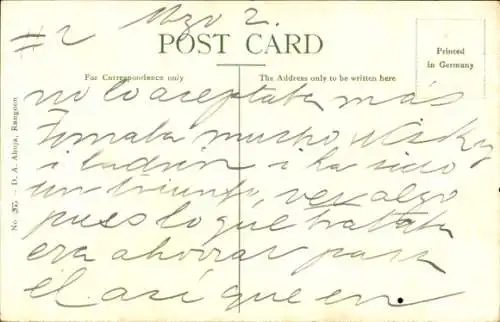 #2 Mzo 2.
POST CARD
Printed
in Germany
For Correspondence only
The Address only to be written here
No. 265 – D. A. Ahuja, Rangoon
no lo aceptaba más
Tomaba mucho Wisky
i ladrón i ha sido
un triunfo, ver algo
pues lo que trataba
era ahorrar para
el así que en